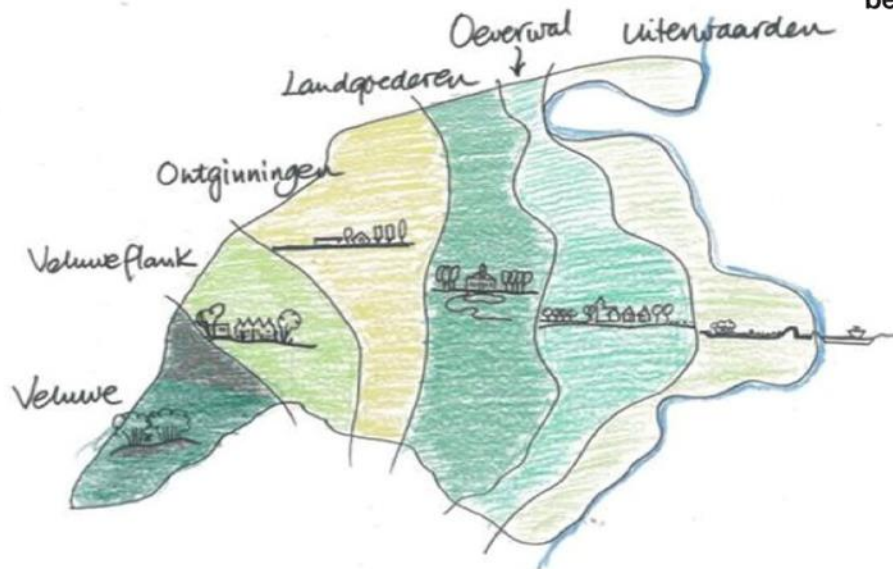 be
Oeverwal
Uiterwaarden
Landgoederen
Ontginningen
Veluweflank
Veluwe